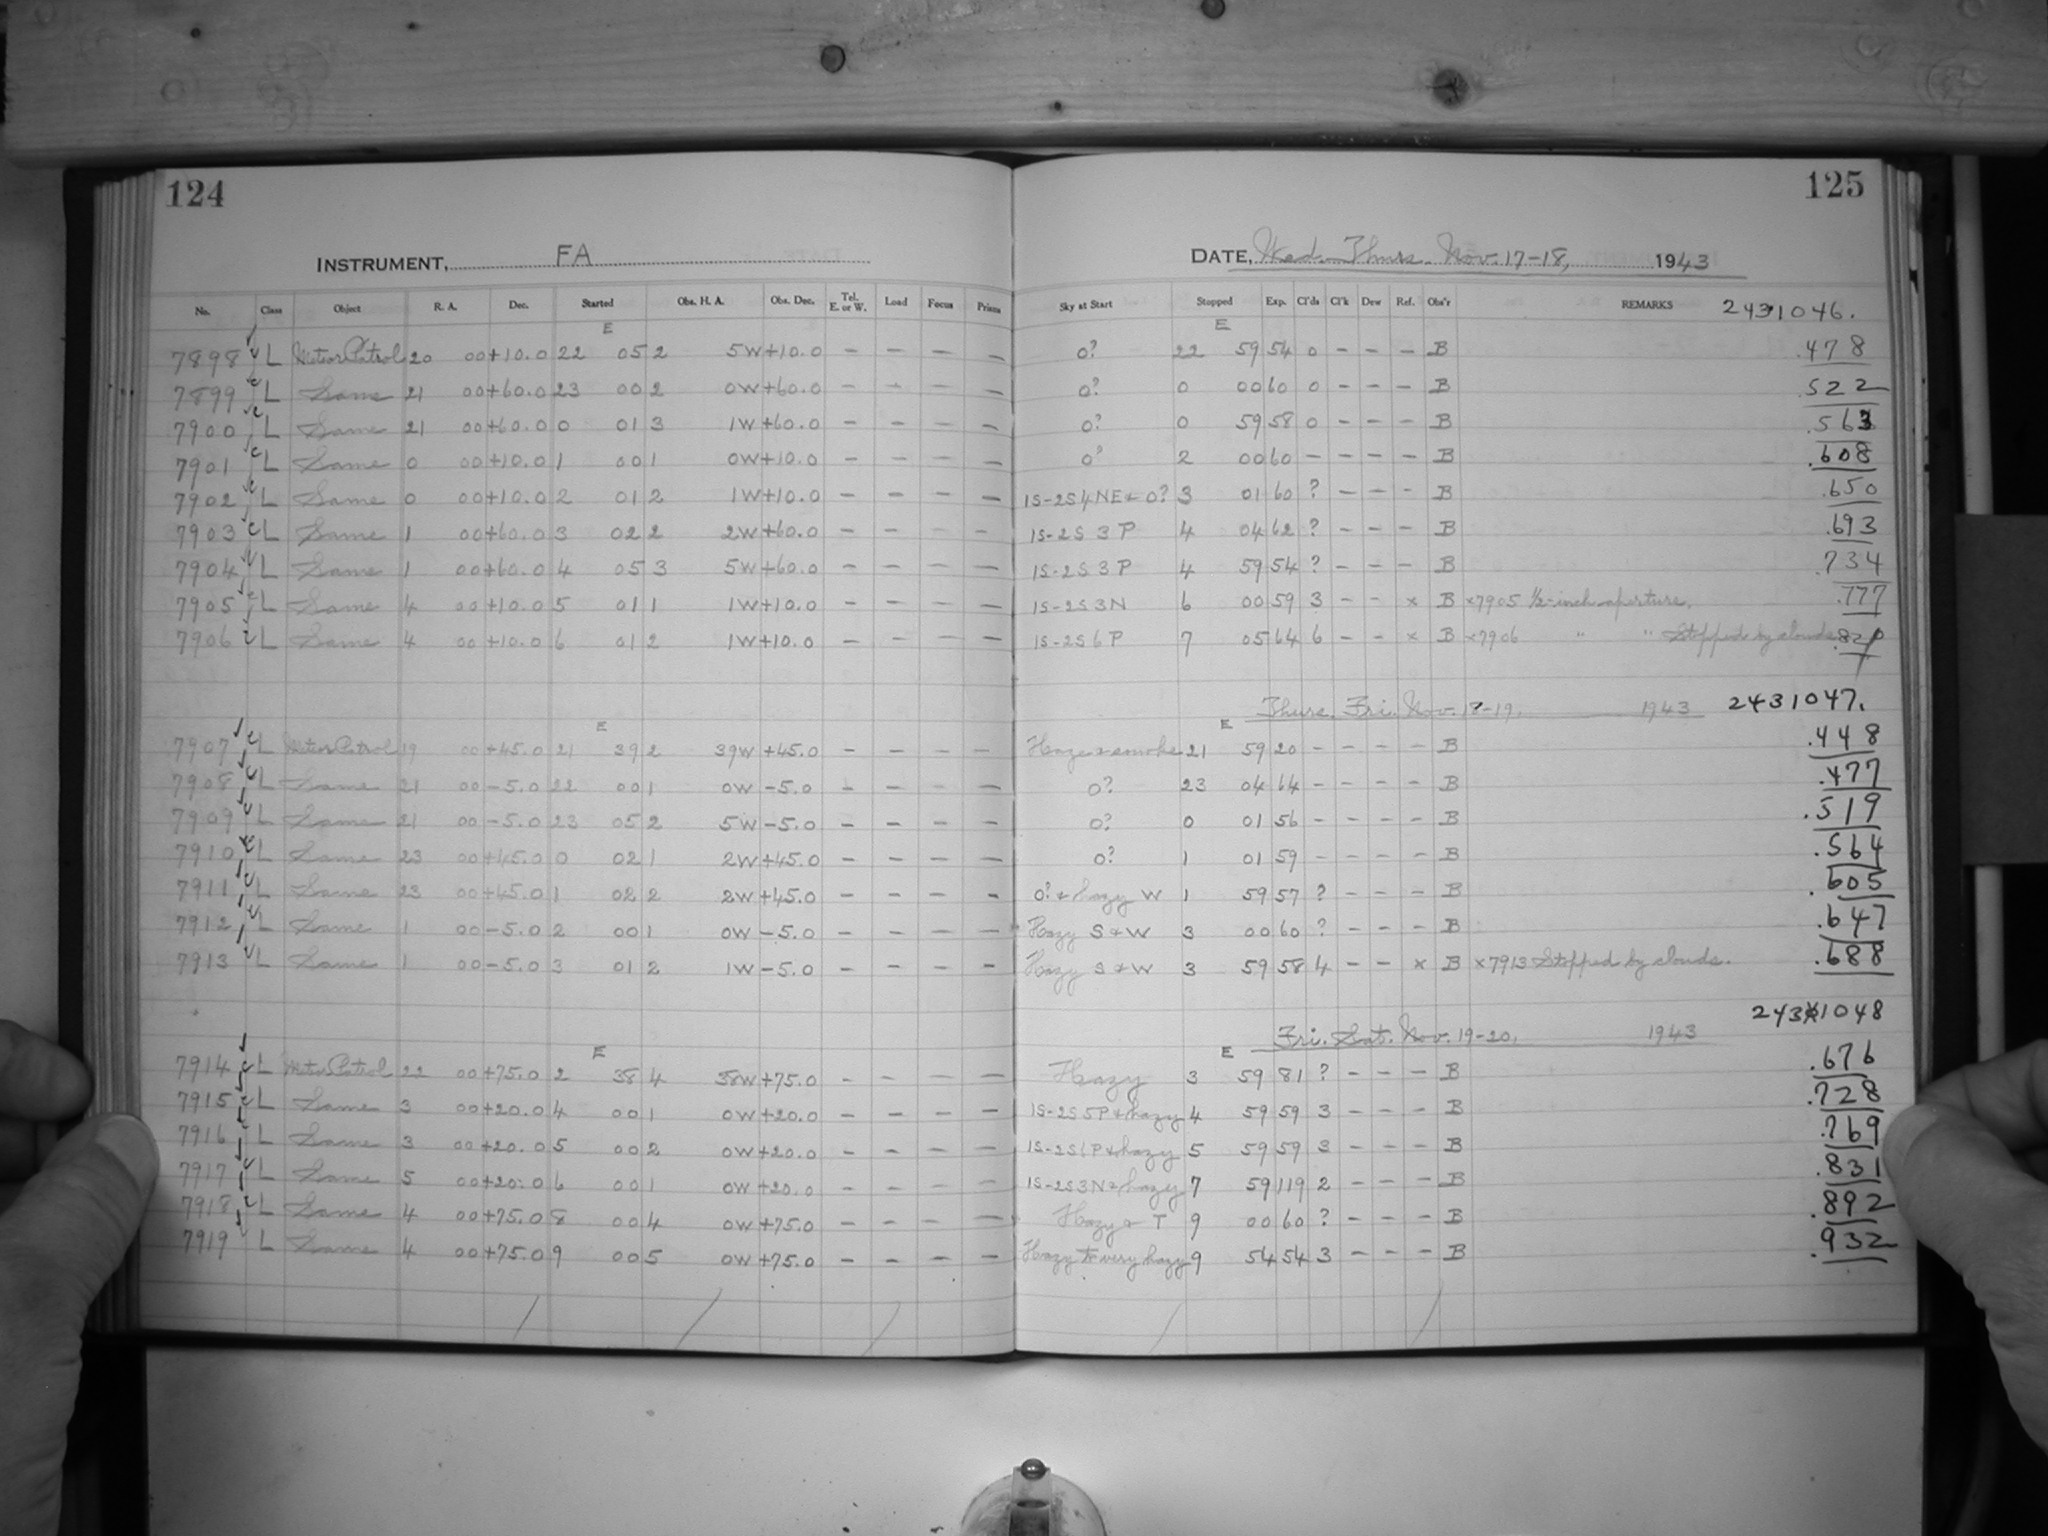 124
125
INSTRUMENT, FA
DATE, Wed.-Thurs. Nov. 17-18, 1943
No. Class Object R. A. Dec. Started Obs. H. A. Obs. Dec. Tel. E. or W. Load Focus Prism Sky at Start Stopped Exp. Cl'ds Cl'k Dew Ref. Obs'r REMARKS 2431046.
E E
7898 L Meteor Patrol 20 00 +10.0 22 05 2 5W +10.0 - - - - 0? 22 59 54 0 - - - B .478
7899 L Same 21 00 +60.0 23 00 2 0W +60.0 - - - - 0? 0 00 60 0 - - - B .522
7900 L Same 21 00 +60.0 0 01 3 1W +60.0 - - - - 0? 0 59 58 0 - - - B .563
7901 L Same 0 00 +10.0 1 00 1 0W +10.0 - - - - 0? 2 00 60 - - - - B .608
7902 L Same 0 00 +10.0 2 01 2 1W +10.0 - - - - 1S-2S4NE+0? 3 01 60 ? - - - B .650
7903 L Same 1 00 +60.0 3 02 2 2W +60.0 - - - - 1S-2S 3 P 4 04 62 ? - - - B .693
7904 L Same 1 00 +60.0 4 05 3 5W +60.0 - - - - 1S-2S 3 P 4 59 54 ? - - - B .734
7905 L Same 4 00 +10.0 5 01 1 1W +10.0 - - - - 1S-2S3N 6 00 59 3 - - x B x7905 1/2-inch aperture. .777
7906 L Same 4 00 +10.0 6 01 2 1W +10.0 - - - - 1S-2S6P 7 05 64 6 - - x B x7906 " " Stopped by clouds .820
Thurs. Fri. Nov. 18-19. 1943 2431047.
E E
7907 L Meteor Patrol 19 00 +45.0 21 39 2 39W +45.0 - - - - Haze & smoke 21 59 20 - - - - B .448
7908 L Same 21 00 -5.0 22 00 1 0W -5.0 - - - - 0? 23 04 64 - - - - B .477
7909 L Same 21 00 -5.0 23 05 2 5W -5.0 - - - - 0? 0 01 56 - - - - B .519
7910 L Same 23 00 +45.0 0 02 1 2W +45.0 - - - - 0? 1 01 59 - - - - B .564
7911 L Same 23 00 +45.0 1 02 2 2W +45.0 - - - - 0? & hazy W 1 59 57 ? - - - B .605
7912 L Same 1 00 -5.0 2 00 1 0W -5.0 - - - - Hazy S & W 3 00 60 ? - - - B .647
7913 L Same 1 00 -5.0 3 01 2 1W -5.0 - - - - Hazy S & W 3 59 58 4 - - x B x7913 Stopped by clouds. .688
2431048
Fri. Sat. Nov. 19-20, 1943
E E
7914 L Meteor Patrol 22 00 +75.0 2 38 4 38W +75.0 - - - - Hazy 3 59 81 ? - - - B .676
7915 L Same 3 00 +20.0 4 00 1 0W +20.0 - - - - 1S-2S5P & hazy 4 59 59 3 - - - B .728
7916 L Same 3 00 +20.0 5 00 2 0W +20.0 - - - - 1S-2S6P & hazy 5 59 59 3 - - - B .769
7917 L Same 5 00 +20.0 6 00 1 0W +20.0 - - - - 1S-2S3N & hazy 7 59 119 2 - - - B .831
7918 L Same 4 00 +75.0 8 00 4 0W +75.0 - - - - Hazy & T 9 00 60 ? - - - B .892
7919 L Same 4 00 +75.0 9 00 5 0W +75.0 - - - - Hazy to very hazy 9 54 54 3 - - - B .932